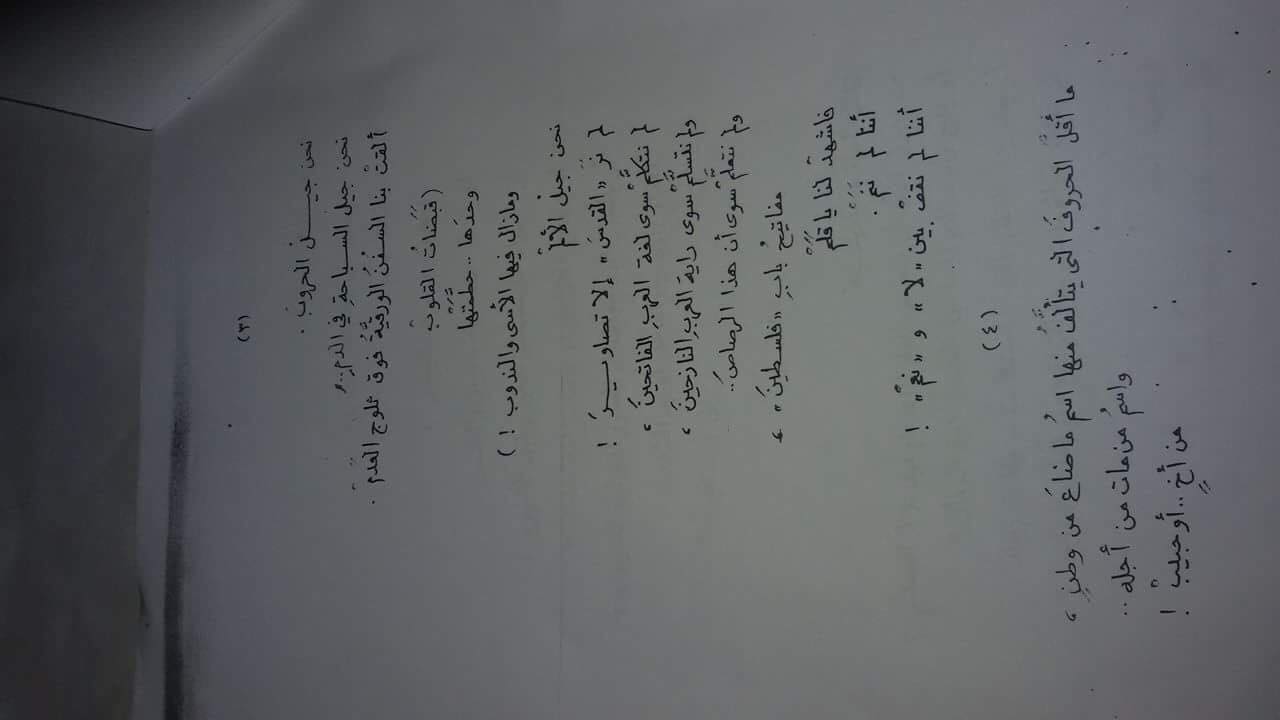 (٣)
نحن جيــل الحروبْ .
نحن جيل السباحةِ في الدمِ ..
ألقتْ بنا السفنُ الورقيةُ فوق ثلوج العَدَمْ .
(قَبَضَاتُ القلوبْ
وحدَها .. حطمتها
ومازال فيها الأسى والندوب ! )
نحن جيلُ الألمْ
لم نَرَ «القدسَ» إلا تصاويــرَ !
لم نتكلَّمْ سوى لغة العربِ الفاتحينَ ،
ولم نتسلَّمْ سوى راية العربِ النازحينَ ،
ولم نتعلَّمْ سوى أن هذا الرصاصَ ..
مفاتيحُ بابِ «فلسطينَ» ،
فاشهدْ لنا يا قلمْ
أننا لم نَنَمْ .
أننا لم نقفْ بين «لا» و «نعمْ» !
(٤)
ما أقلَّ الحروفَ التى يتألَّفُ منها اسمُ ما ضاعَ من وطنٍ ،
واسمُ من مات من أجلهِ ..
من أخٍ .. أو حبيبْ !